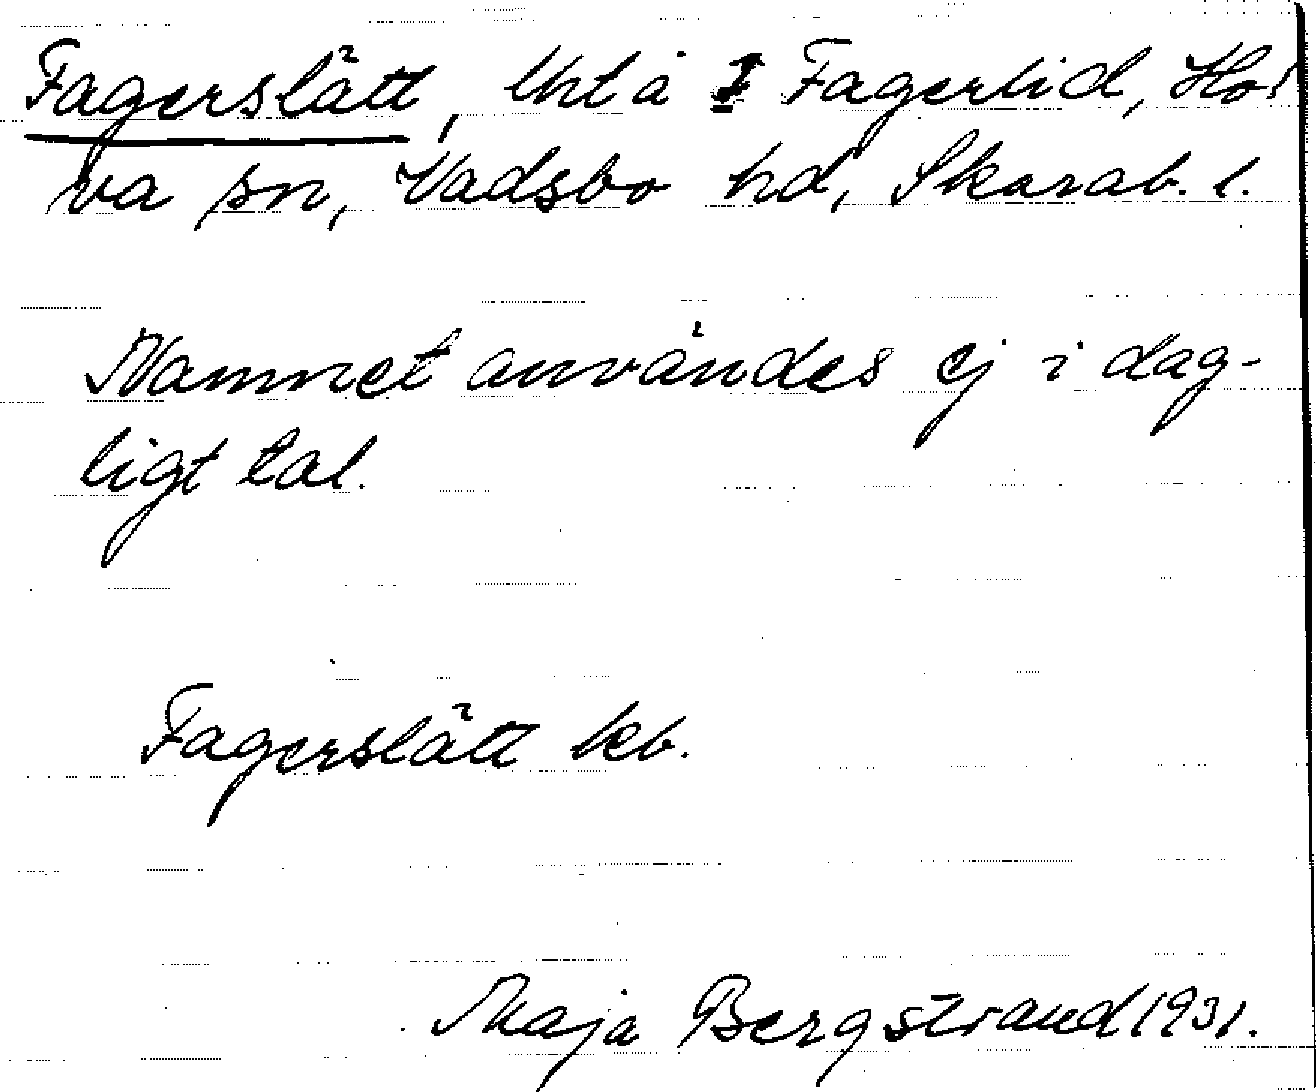 Fagerslätt, lht å I Fagerlid, Ho-
va sn, Vadsbo hd, Skarab. l.
Namnet användes ej i dag-
ligt tal.
Fagerslätt kb.
Maja Bergstrand 1931.